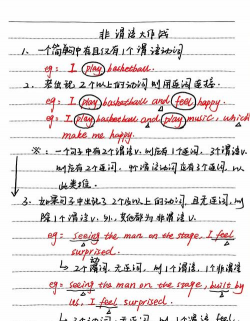 非谓语大作战
1. 一个简单句中有且仅有1个谓语动词
eg: I play basketball.
2. 若出现2个以上的动词 则用连词连接.
eg: I play basketball and feel happy.
eg: I play basketball and play music, which
make me happy.
※: 一个句子中有2个谓语v.则应有1个连词. 3个谓语v.
则应有2个连词. 个谓语动词应有3个连词, 以
此类推.
3. 如果句子中出现了2个或以上的动词, 且无连词, 则
除1个谓语v.外, 其他都为非谓语v.
eg: seeing the man on the stage, I feel
surprised.
↳ 2个动词, 无连词, 则1个谓语, 1个非谓语
eg: seeing the man on the stage, built by
us, I feel surprised.
↳ 3个动词, 无连词, 则1个谓语 feel,